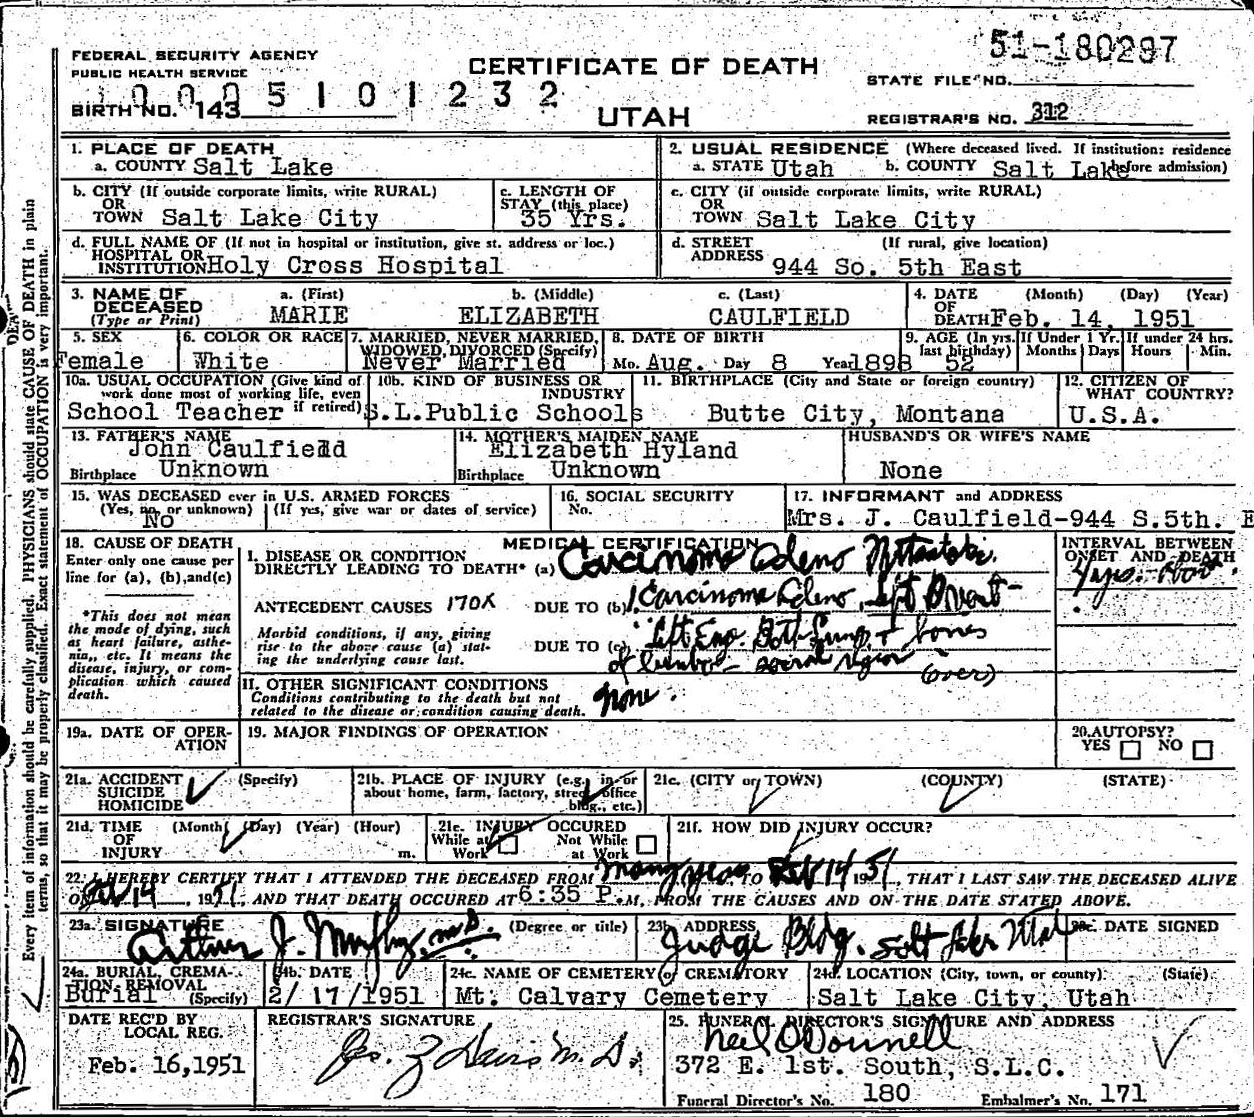 51-180287
FEDERAL SECURITY AGENCY
PUBLIC HEALTH SERVICE
CERTIFICATE OF DEATH
STATE FILE NO.
1 0 0 0 5 1 0 1 2 3 2
BIRTH NO. 143
UTAH
REGISTRAR'S NO. 312
1. PLACE OF DEATH
a. COUNTY Salt Lake
2. USUAL RESIDENCE (Where deceased lived. If institution: residence before admission)
a. STATE Utah b. COUNTY Salt Lake
b. CITY (If outside corporate limits, write RURAL)
OR
TOWN Salt Lake City
c. LENGTH OF
STAY (this place)
35 Yrs.
c. CITY (if outside corporate limits, write RURAL)
OR
TOWN Salt Lake City
d. FULL NAME OF (If not in hospital or institution, give st. address or loc.)
HOSPITAL OR
INSTITUTION Holy Cross Hospital
d. STREET (If rural, give location)
ADDRESS
944 So. 5th East
3. NAME OF
DECEASED
(Type or Print)
a. (First) b. (Middle) c. (Last)
MARIE ELIZABETH CAULFIELD
4. DATE (Month) (Day) (Year)
OF
DEATH Feb. 14, 1951
5. SEX
Female
6. COLOR OR RACE
White
7. MARRIED, NEVER MARRIED,
WIDOWED, DIVORCED (Specify)
Never Married
8. DATE OF BIRTH
Mo. Aug. Day 8 Year 1898
9. AGE (In yrs. last birthday) 52
If Under 1 Yr. Months Days
If under 24 hrs. Hours Min.
10a. USUAL OCCUPATION (Give kind of
work done most of working life, even
if retired)
School Teacher
10b. KIND OF BUSINESS OR
INDUSTRY
S.L.Public Schools
11. BIRTHPLACE (City and State or foreign country)
Butte City, Montana
12. CITIZEN OF
WHAT COUNTRY?
U.S.A.
13. FATHER'S NAME
John Caulfield
Birthplace Unknown
14. MOTHER'S MAIDEN NAME
Elizabeth Hyland
Birthplace Unknown
HUSBAND'S OR WIFE'S NAME
None
15. WAS DECEASED ever in U.S. ARMED FORCES
(Yes, no, or unknown) (If yes, give war or dates of service)
No
16. SOCIAL SECURITY
No.
17. INFORMANT and ADDRESS
Mrs. J. Caulfield-944 S.5th. E
18. CAUSE OF DEATH
Enter only one cause per
line for (a), (b),and(c)
*This does not mean
the mode of dying, such
as heart failure, asthe
nia,, etc. It means the
disease, injury, or com-
plication which caused
death.
MEDICAL CERTIFICATION
I. DISEASE OR CONDITION
DIRECTLY LEADING TO DEATH* (a) Carcinoma Adeno
ANTECEDENT CAUSES 170X DUE TO (b) Carcinoma Adeno, Left Breast
Morbid conditions, if any, giving
rise to the above cause (a) stat-
ing the underlying cause last.
DUE TO (c) Left Both Lungs + bones
of lumbo- sacral region (over)
INTERVAL BETWEEN
ONSET AND DEATH
4 yrs. About.
II. OTHER SIGNIFICANT CONDITIONS
Conditions contributing to the death but not
related to the disease or condition causing death.
None.
19a. DATE OF OPER-
ATION
19. MAJOR FINDINGS OF OPERATION
20. AUTOPSY?
YES NO
21a. ACCIDENT (Specify)
SUICIDE
HOMICIDE
21b. PLACE OF INJURY (e.g. in or
about home, farm, factory, street, office
bldg., etc.)
21c. (CITY or TOWN) (COUNTY) (STATE)
21d. TIME (Month) (Day) (Year) (Hour)
OF
INJURY m.
21e. INJURY OCCURED
While at Work Not While at Work
21f. HOW DID INJURY OCCUR?
22. I HEREBY CERTIFY THAT I ATTENDED THE DECEASED FROM many years, TO Feb 14 1951, THAT I LAST SAW THE DECEASED ALIVE
ON Feb 14, 1951, AND THAT DEATH OCCURED AT 6:35 P.M, FROM THE CAUSES AND ON THE DATE STATED ABOVE.
23a. SIGNATURE (Degree or title)
Arthur J. Murphy M.D.
23b. ADDRESS
Judge Bldg. Salt Lake Utah
23c. DATE SIGNED
24a. BURIAL, CREMA-
TION, REMOVAL
Burial (Specify)
24b. DATE
2/17/1951
24c. NAME OF CEMETERY (or CREMATORY
Mt. Calvary Cemetery
24d. LOCATION (City, town, or county) (State)
Salt Lake City, Utah
DATE REC'D BY
LOCAL REG.
Feb. 16,1951
REGISTRAR'S SIGNATURE
25. FUNERAL DIRECTOR'S SIGNATURE AND ADDRESS
Neil O'Donnell
372 E. 1st. South, S.L.C.
Funeral Director's No. 180 Embalmer's No. 171
Every item of information should be carefully supplied. PHYSICIANS should state CAUSE OF DEATH in plain
terms, so that it may be properly classified. Exact statement of OCCUPATION is very important.